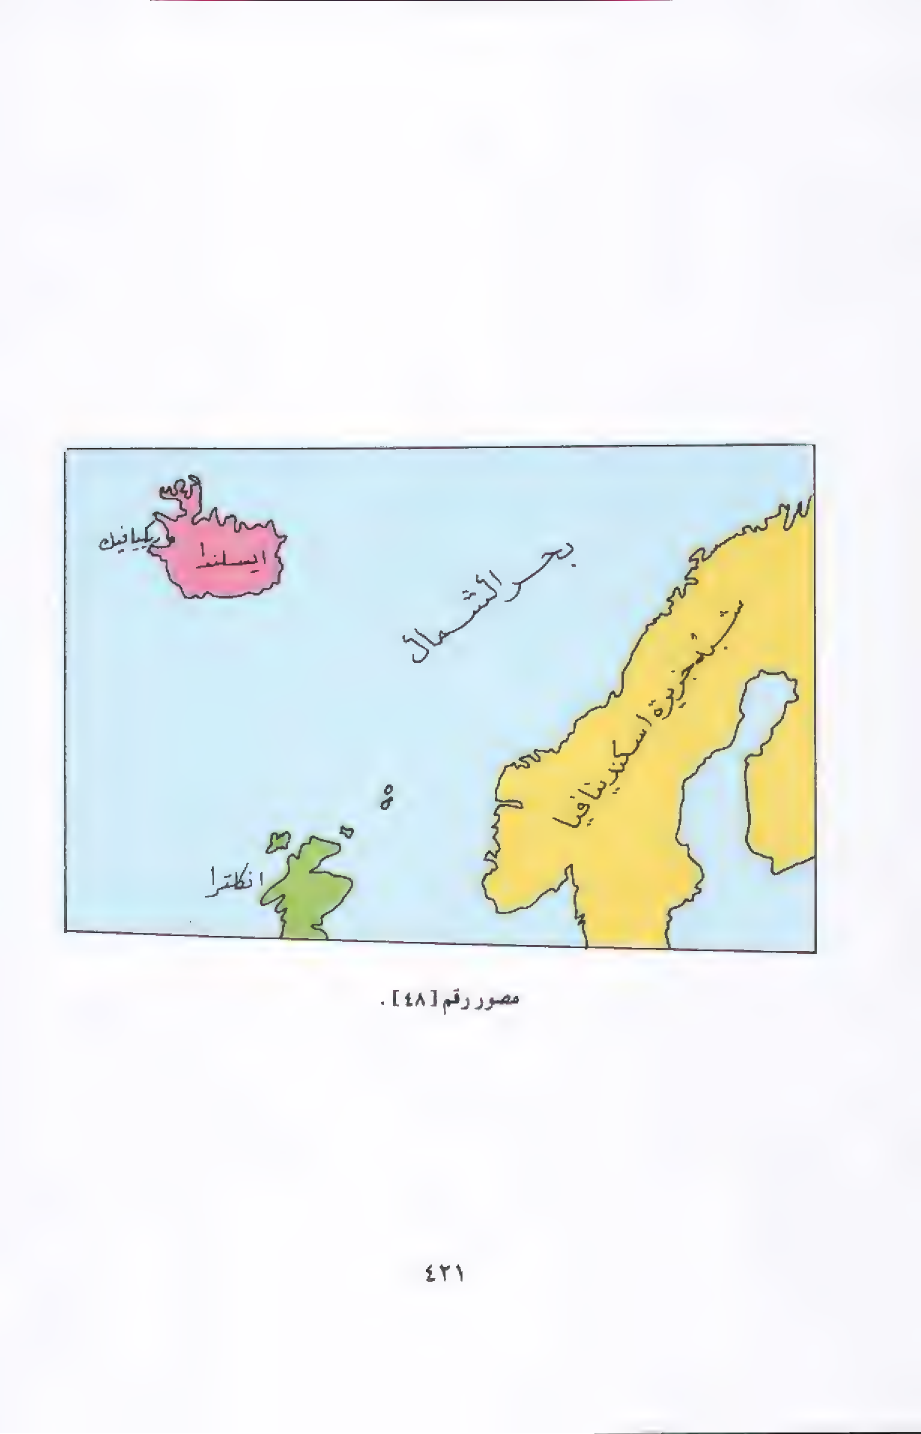 ريكيافيك
ايسلندا
بحر الشمال
شبه جزيرة اسكندينافيا
انكلترا
مصور رقم [٤٨] .
٤٢١